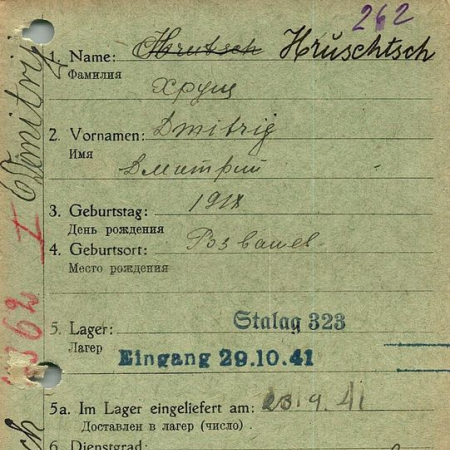 262
1. Name: Hrutsch Hruschtsch
Фамилия
Хрущ
2. Vornamen: Dmitrij
Имя
Дмитрий
3. Geburtstag: 1918
День рождения
4. Geburtsort:
Место рождения
5. Lager: Stalag 323
Лагер
Eingang 29.10.41
5a. Im Lager eingeliefert am: 23.9.41
Доставлен в лагер (число)
6. Dienstgrad:
Dmitrij
I
362
ch